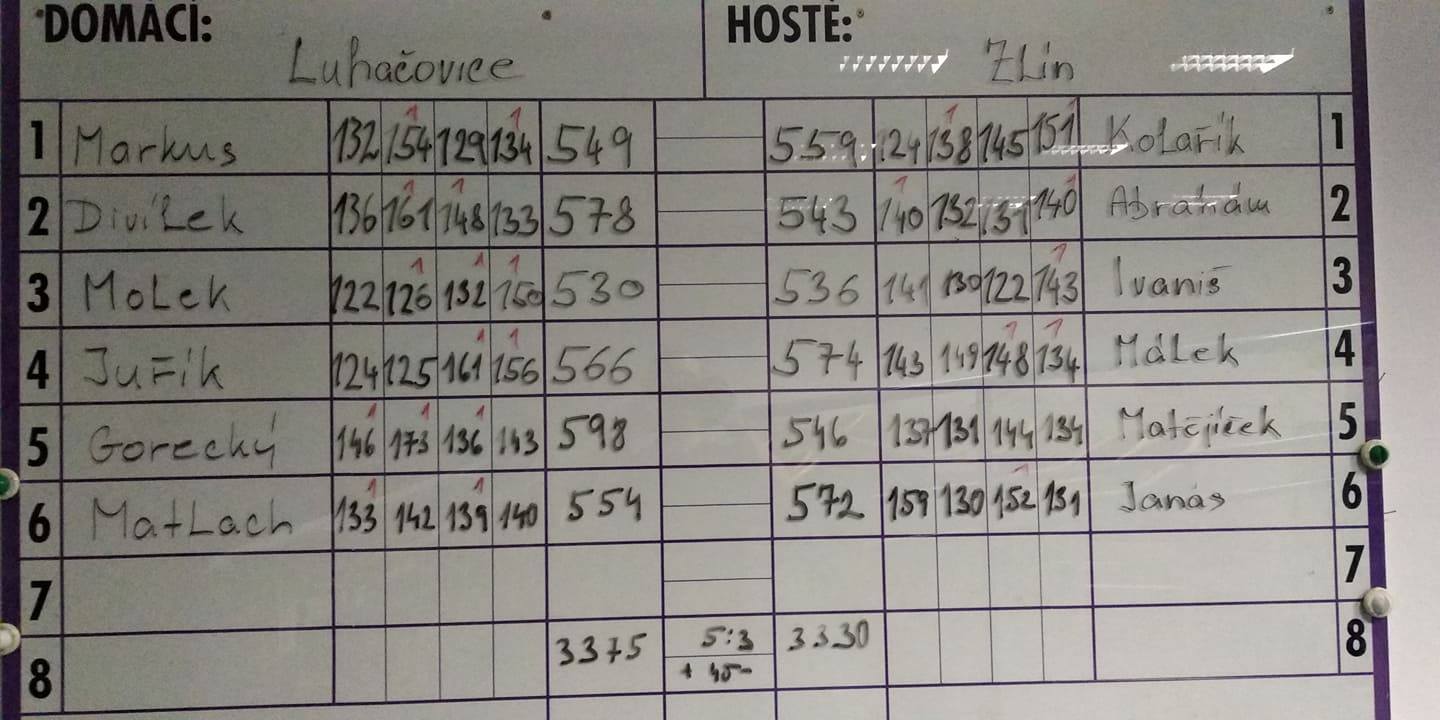 DOMÁCÍ: HOSTÉ:
Luhačovice Zlín
1 Markus 132 154 129 134 549 559 124 138 145 151 Kolařík 1
2 Divílek 136 161 148 133 578 543 140 132 131 140 Abrahám 2
3 Molek 122 126 132 150 530 536 141 130 122 143 Ivaniš 3
4 Juřík 124 125 161 156 566 574 143 149 148 134 Málek 4
5 Gorecký 146 173 136 143 598 546 137 131 144 134 Matějíček 5
6 Matlach 133 142 139 140 554 572 159 130 152 131 Janás 6
7 7
8 3375 5:3 3330 8
+ 45 -